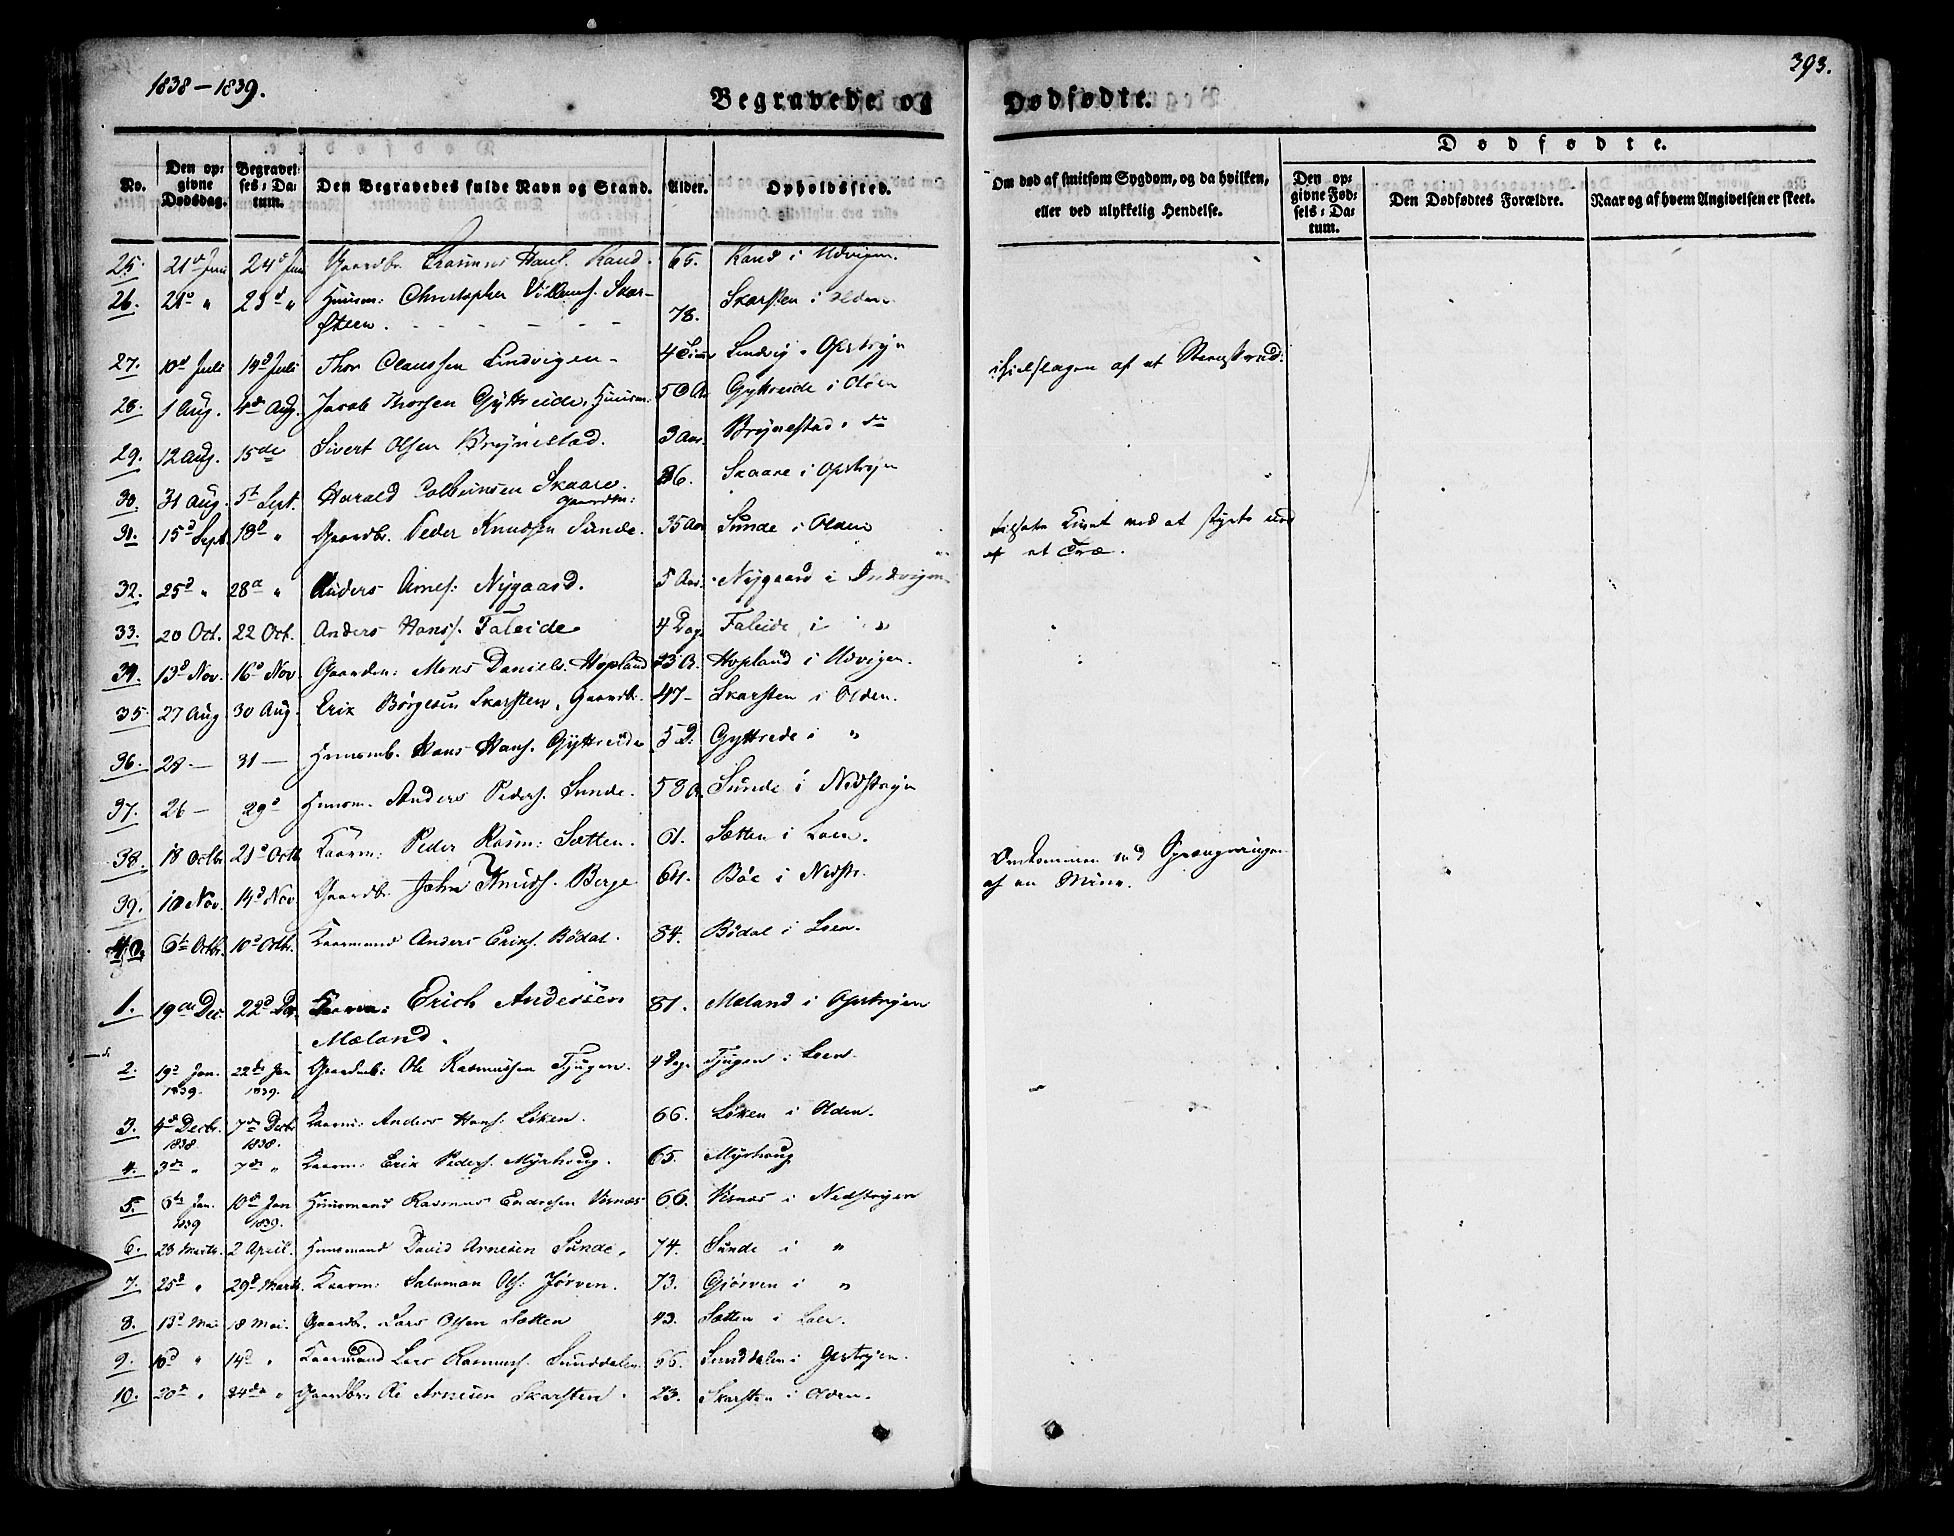 1838-1839.
393.
Begravede og
Dødfødte.
No.
Den opgivne Dødsdag.
Begravelses-Datum.
Den Begravedes fulde Navn og Stand.
Alder.
Opholdssted.
Om død af smitsom Sygdom, og da hvilken, eller ved ulykkelig Hendelse.
Dødfødte.
Den opgivne Fødsels-Datum.
Den Dødfødtes Forældre.
Naar og af hvem Angivelsen er skeet.
25. 21d Juni 24d Juni Gaardbr. Rasmus Hans. Rand. 65. Rand i Udvigen.
26. 21d " 25d " Huusm: Christopher Villums. Skar-
steen. 78. Skarsten i Olden
27. 10d Juli 14d Juli Thor Claussen Lindvigen Lindvig i Opstryn ihjelslagen af et Steenskred:
28. 1 Aug. 4de Aug. Jacob Thorsen Gyttreide, Huusm: 50 A. Gyttreide i Olden
29. 12 Aug. 15de Sivert Olsen Brynestad. 3 Aar. Brynestad i do
30. 31 Aug. 5t Sept. Harald Skaare Gaardm: Skaare i Opstryn
31. 15d Sept. 18d " Gaardbr. Peder Knudsen Sunde. 35 Aar Sunde i Olden tilsatte Livet ved at styrte ned
af et Træ.
32. 25d " 28d " Anders Arnes: Nygaard. 5 Aar. Nygaard i Indvigen
33. 20 Oct. 22 Oct. Anders Hans. Faleide 4 Dag Faleide i "
34. 13d Nov. 16d Nov. Mons Daniels. Hopland Hopland i Udvigen.
35 27 Aug 30 Aug. Erik Børgesen Skarsten, Gaardbr. 47- Skarsten i Olden.
36. 28 - 31 - Huusmb. Hans Hans. Gyttreide 5 D. Gyttrede i "
37. 26 - 29d Huusm. Anders Peders. Sunde. 53 A. Sunde i Nedstryn
38. 18 Octbr 21d Octb Kaarm: Peder Rasm: Sætten. 61. Sætten i Loen.
39. 10 Nov. 14d Nov. Gaardbr. John Knuds. Berge 64. Böe i Nedstr. Omkommen ved Sprængningen
af en Mine.
40. 6te Octbr. 10d Octbr. Kaarmand Anders Eriks. Bødal. 84. Bödal i Loen.
1. 19de Dec. 22d Dec. Kaarm: Erich Andersen
Mæland. 81. Mæland i Opstryen
2. 19d Jan. 1839. 22de Jan 1839. Gaardmb: Ole Rasmussen Tjugen. 4 Dag. Tjugen i Loen.
3. 4d Decbr. 1838. 7de Decbr 1838. Kaarm: Anders Hans. Løken. 66. Løken i Olden.
4. 3de " 7de " Kaarm: Erik Peders. Myrhoug. 65. Myrhoug
5. 6te Jan. 1839 10d Jan 1839. Huusmand Rasmus Endresen Visnæs 66. Visnæs i Nedstryen
6. 28 Marts. 2 April. Huusmand David Arnesen Sunde. 74. Sunde i "
7. 25d " 29d Marts. Kaarm: Salomon Ols: Jørven. 73. Gjörven i "
8. 13d Mai 18 Mai. Gaardb. Lars Olsen Sætten 43. Sætten i Loen.
9. 10d " 14d " Kaarmand Lars Rasmuss. Sunddalen 66. Sunddalen i Opstryen.
10. 20d " 24de " Gaardbr. Arnesen Skarsten. 23. Skarsten i Olden.